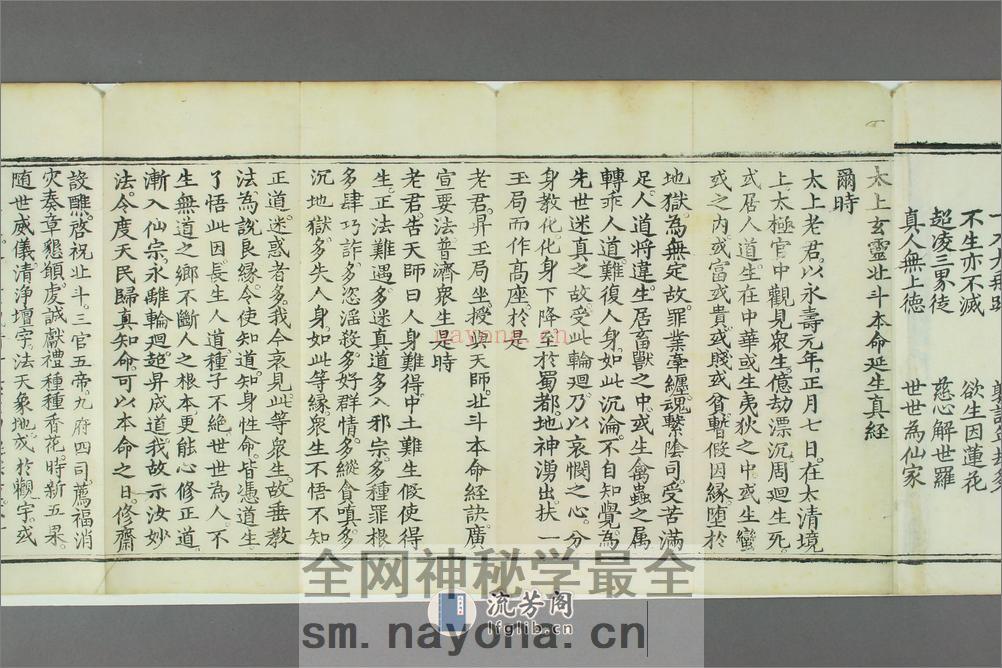 不生亦不滅　欲生因蓮花
超凌三界徒　慈心解世羅
真人無上德　世世為仙家
太上玄靈北斗本命延生真經
爾時
太上老君以永壽元年正月七日在太清境
上太極宮中觀見眾生億劫漂沉周迴生死
或居人道生在中華或生夷狄之中或生蠻
戎之內或富或貴或賤或貧暫假因緣墮於
地獄為無定故罪業牽纏魂繫陰司受苦滿
足人道將違生居畜獸之中或生禽蟲之属
轉乖人道難復人身如此沉淪不自知覺為
先世迷真之故受此輪廻乃以哀憫之心分
身教化化身下降至於蜀都地神湧出扶一
玉局而作高座於是
老君昇玉局坐授與天師北斗本命經訣廣
宣要法普濟眾生是時
老君告天師曰人身難得中土難生假使得
生正法難遇多迷真道多入邪宗多種罪根
多肆巧詐多恣淫殺多好群情多縱貪嗔多
沉地獄多失人身如此等緣眾生不悟不知
正道迷惑者多我今哀見此等眾生故垂教
法為說良緣令使知道知身性命皆憑道生
了悟此因長生人道種子不絕世世為人不
生無道之鄉不斷人之根本更能心修正道
漸入仙宗永離輪廻超昇成道我故示汝妙
法令度天民歸真知命可以本命之日修齋
設醮啓祝北斗三官五帝九府四司薦福消
灾奏章懇願虔誠獻禮種種香花時新五果
随世威儀清浄壇宇法天象地或於觀宇或
nayona.cn
全网神秘学最全
流芳阁
lfglib.cn
sm.nayona.cn